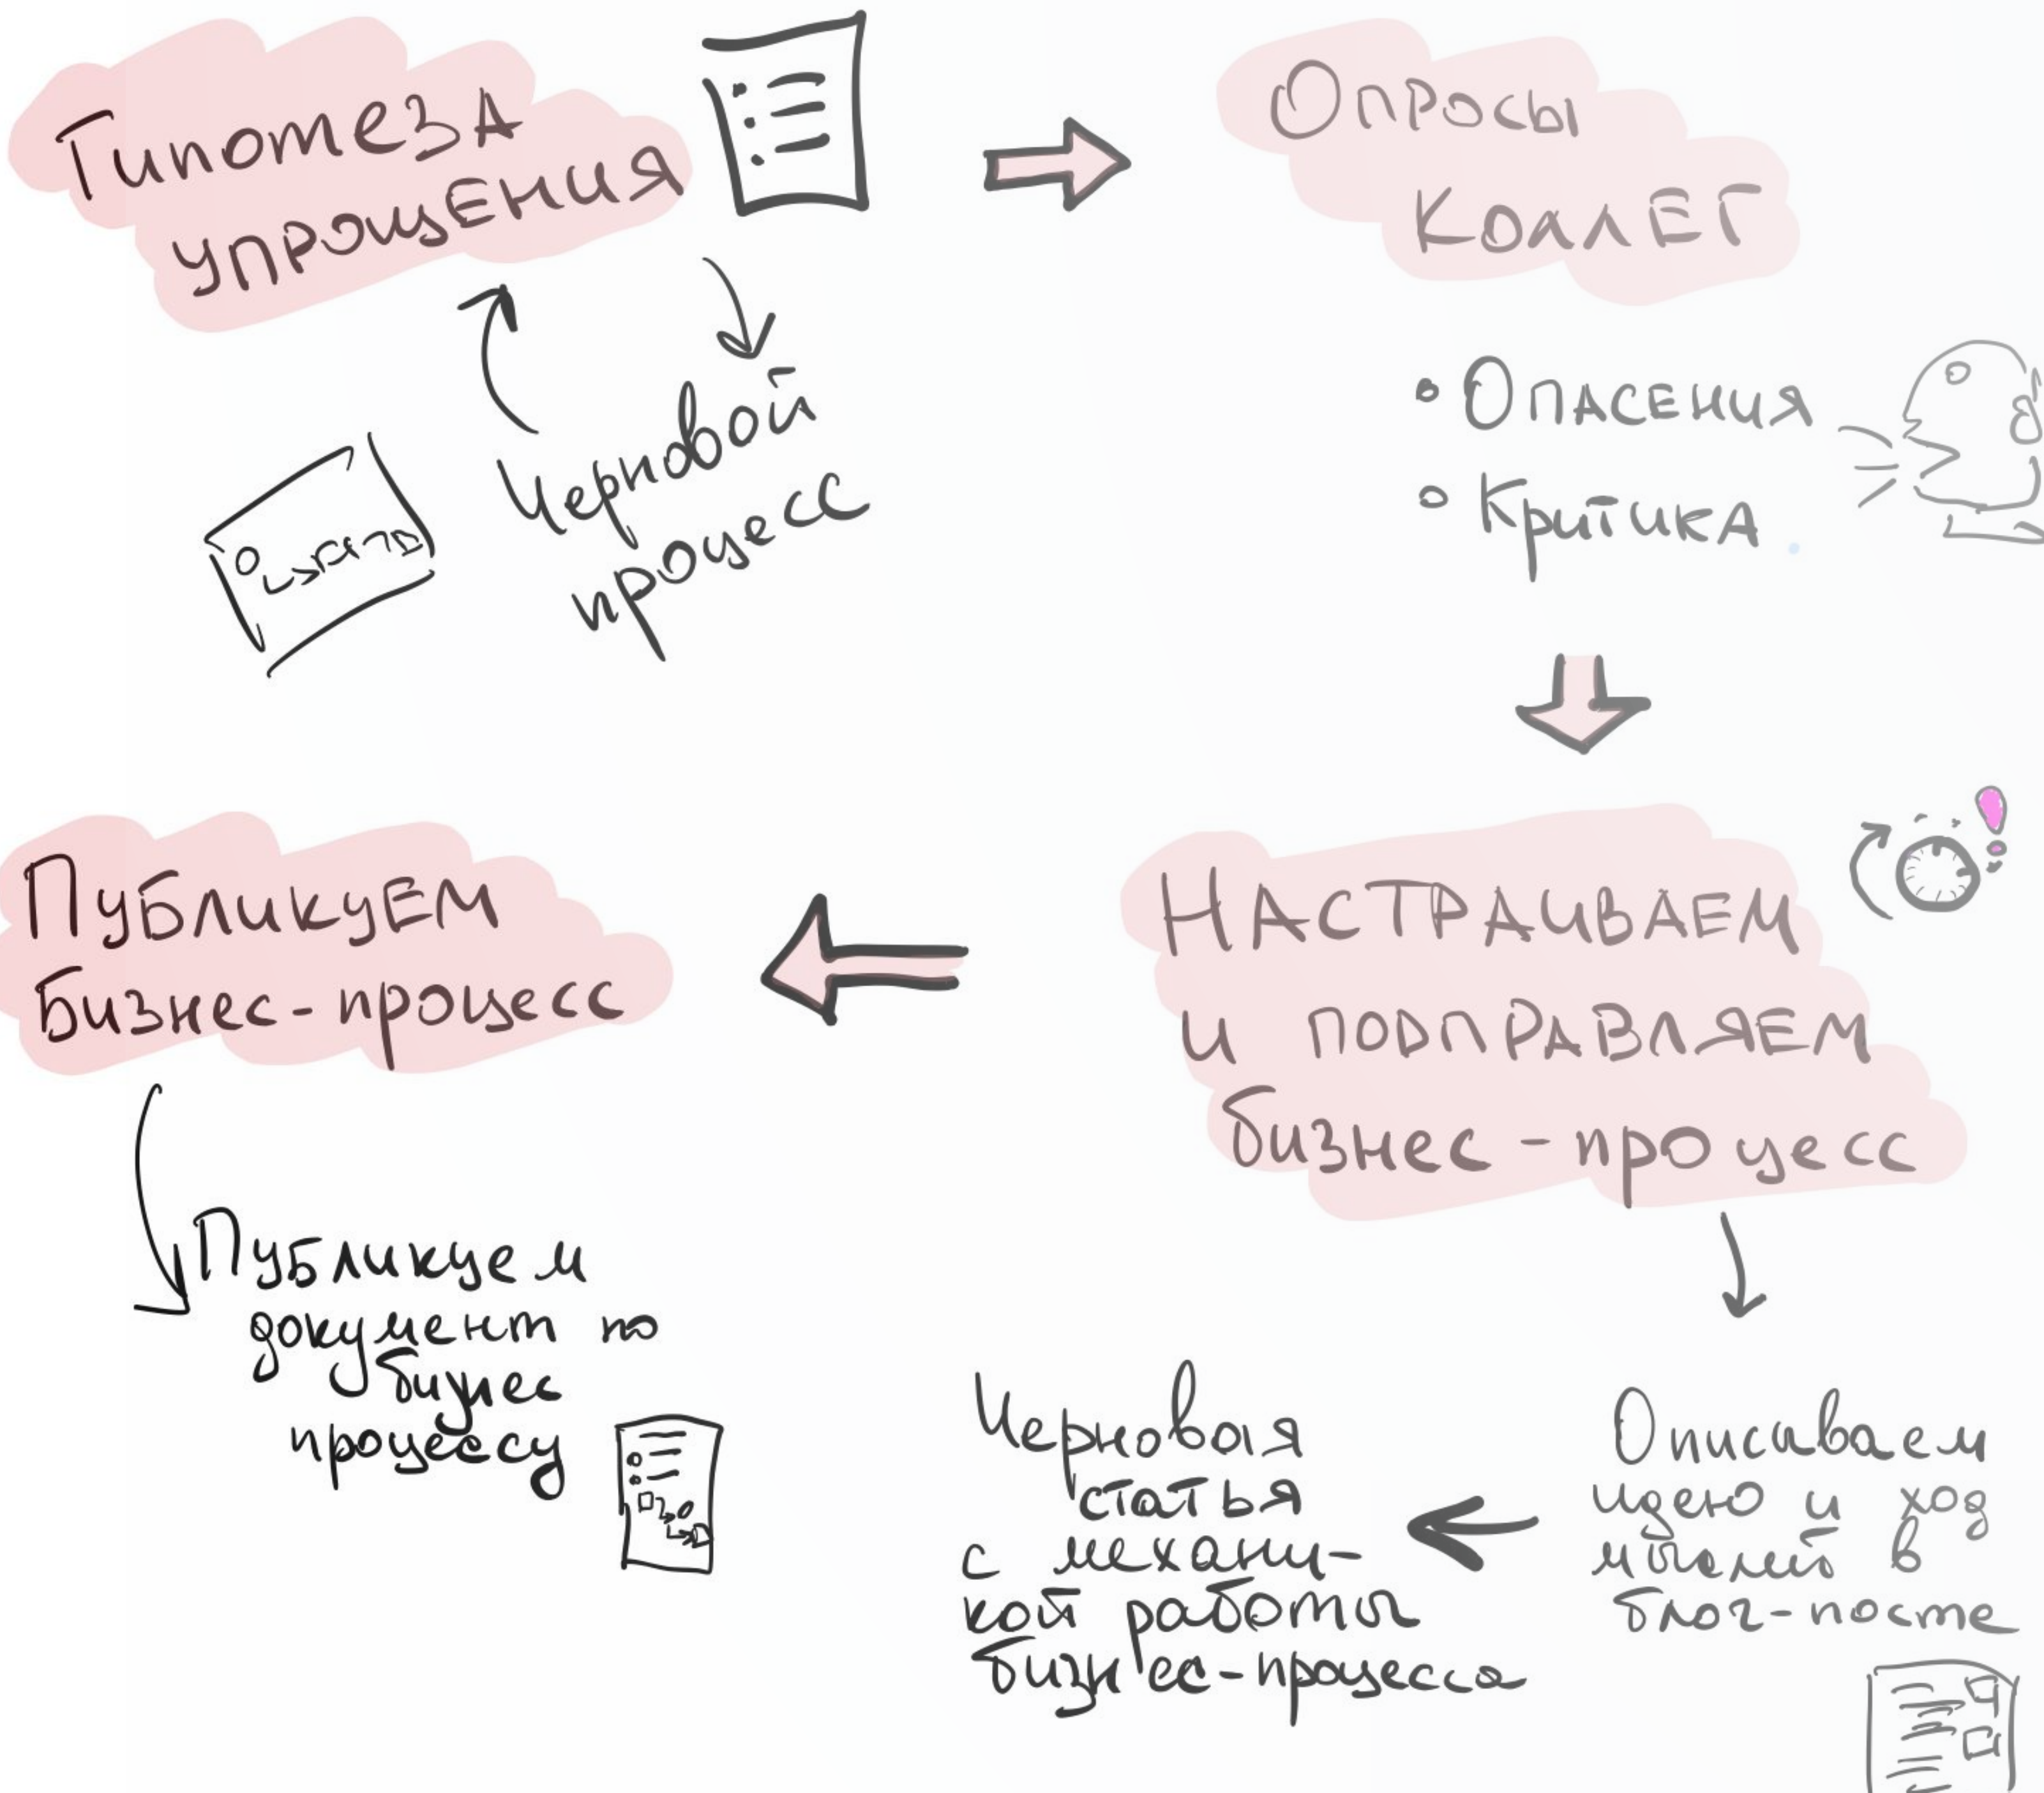 Гипотеза
упрощения
Черновой
процесс
Опросы
Коллег
• Опасения
• Критика
Настраиваем
и подправляем
бизнес-процесс
Описываем
идею и ход
мыслей в
блог-посте
Черновая
статья
с механи-
кой работы
бизнес-процесса
Публикуем
бизнес-процесс
Публикуем
документ по
бизнес
процессу